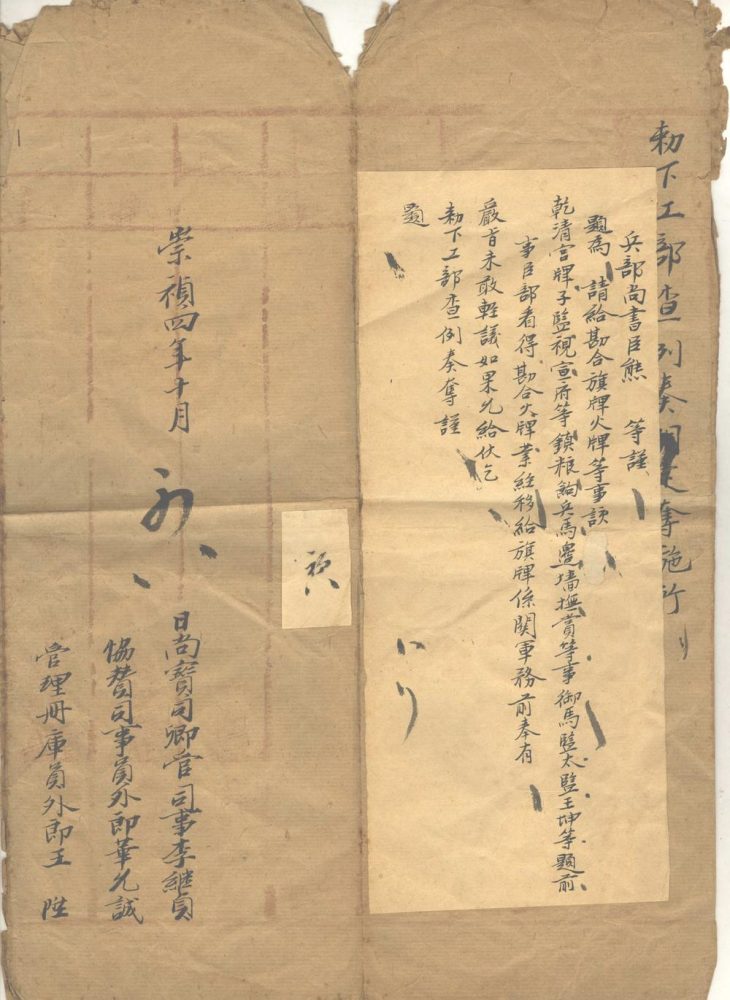 勅下工部查例奏奪施行
兵部尚書臣熊 等謹
題為 請給勘合旗牌火牌等事該
乾清宮牌子監視宣府等鎮粮餉兵馬邊墻撫賞等事御馬監太監王坤等題前
事臣部看得勘合火牌業經移給旗牌係関軍務前奉有
嚴旨未敢輕議如果允給伏乞
勅下工部查例奏奪謹
題
崇禎四年十月
日尚寶司卿管司事李継貞
協賛司事員外郎華允誠
管理冊庫員外郎王 陞